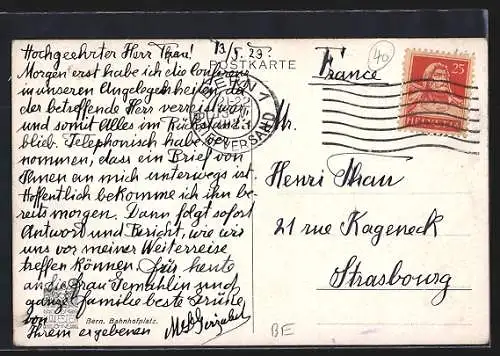 13/5. 23.
Hochgeehrter Herr Thau!
Morgen erst habe ich die Conferenz
in unseren Angelegenheiten, da
der betreffende Herr verreist war
und somit Alles im Rückstand
blieb. Telephonisch habe ver-
nommen, dass ein Brief von
Ihnen an mich unterwegs ist.
Hoffentlich bekomme ich ihn be-
reits morgen. Dann folgt sofort
Antwort und Bericht, wie wir
uns vor meiner Weiterreise
treffen können. Für heute
an die Frau Gemahlin und
ganze Familie beste Grüße
von
Ihrem ergebenen
Bern. Bahnhofplatz.
POSTKARTE
BERN 1
BRIEFVERSAND
France
40
25
HELVETIA
Mr.
Henri Thau
21 rue Kageneck
Strasbourg
BE